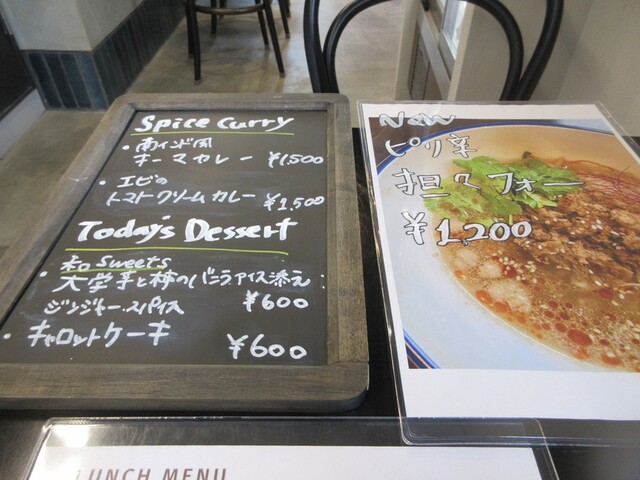 Spice Curry
・南インド風
キーマカレー ¥1,500
・エビの
トマトクリームカレー ¥1,500
Today's Dessert
和 Sweets
・大学芋と柿のバニラアイス添え
ジンジャー・スパイス ¥600
・キャロットケーキ
¥600
New
ピリ辛
担々フォー
¥1,200
LUNCH MENU